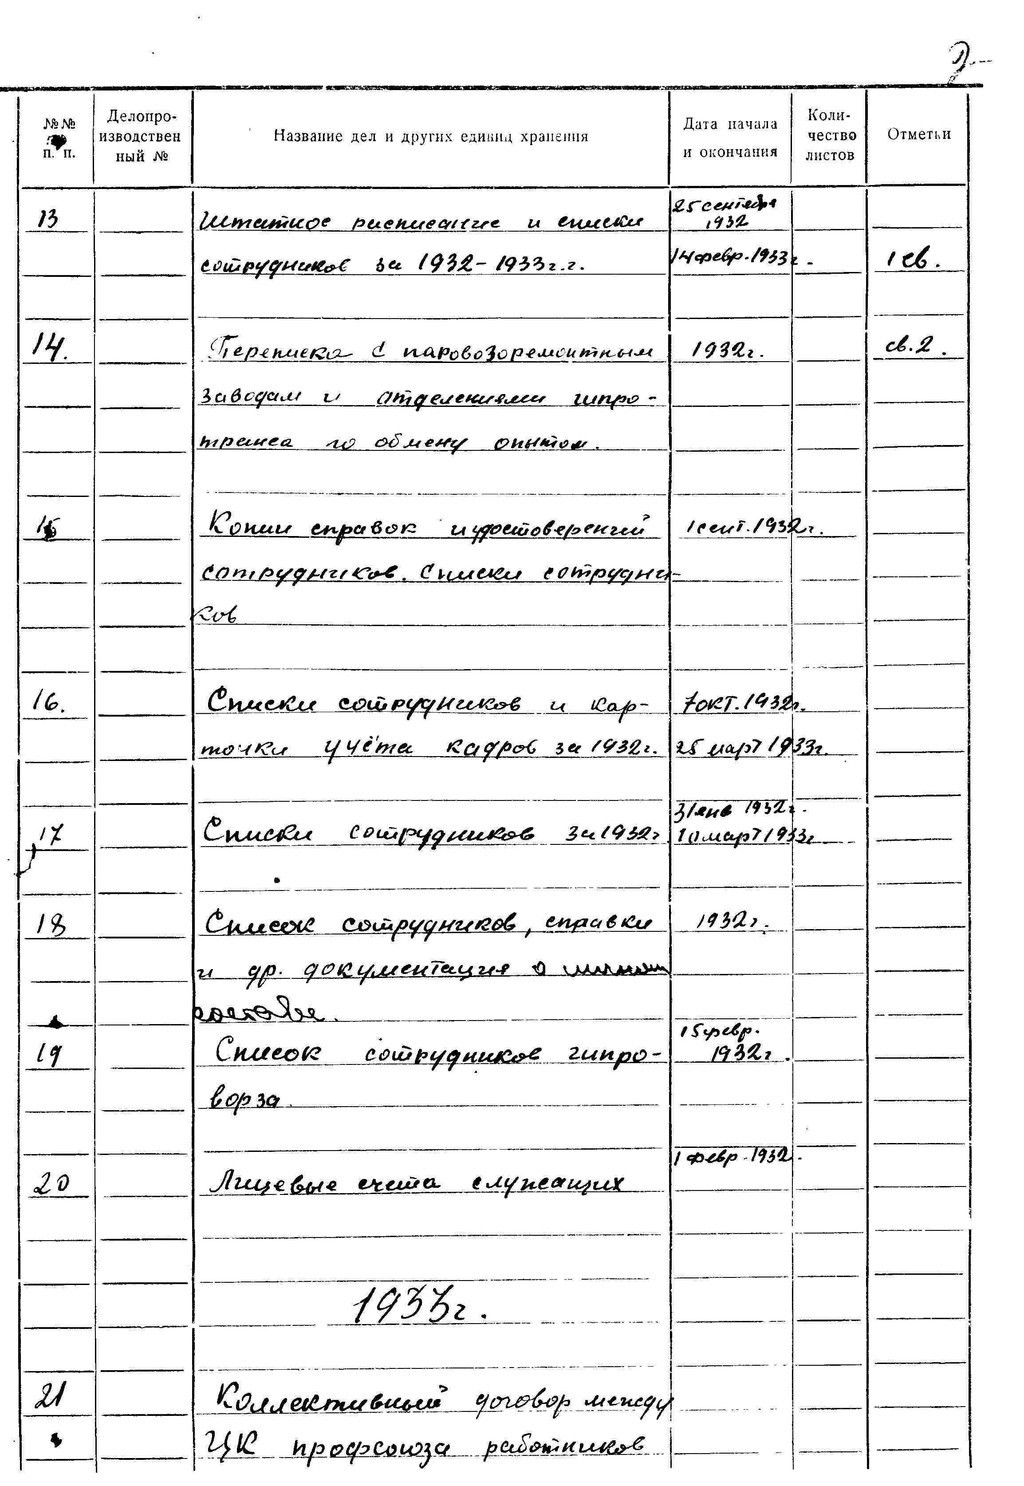 2
№№ п. п. Делопроизводственный № Название дел и других единиц хранения Дата начала и окончания Количество листов Отметки
25 сентября
13 Штатное расписание и списки 1932
сотрудников за 1932-1933г.г. 14 февр. 1933г. 1 св.
14. Переписка с паровозоремонтным 1932г. св. 2.
заводам и отделениями гипро-
транса по обмену опытом.
15 Копии справок и удостоверений 1 сент. 1932г.
сотрудников. Списки сотрудни-
ков
16. Списки сотрудников и кар- 7 окт. 1932г.
точки учёта кадров за 1932г. 25 март 1933г.
31 янв 1932г.
17 Списки сотрудников за 1932г. 10 март 1933г
18 Список сотрудников, справки 1932г.
и др. документация о личном
составе.
15 февр.
19 Список сотрудников гипро- 1932г.
ворза.
1 февр. 1932.
20 Лицевые счета служащих
1933г.
21 Коллективный договор между
ЦК профсоюза работников